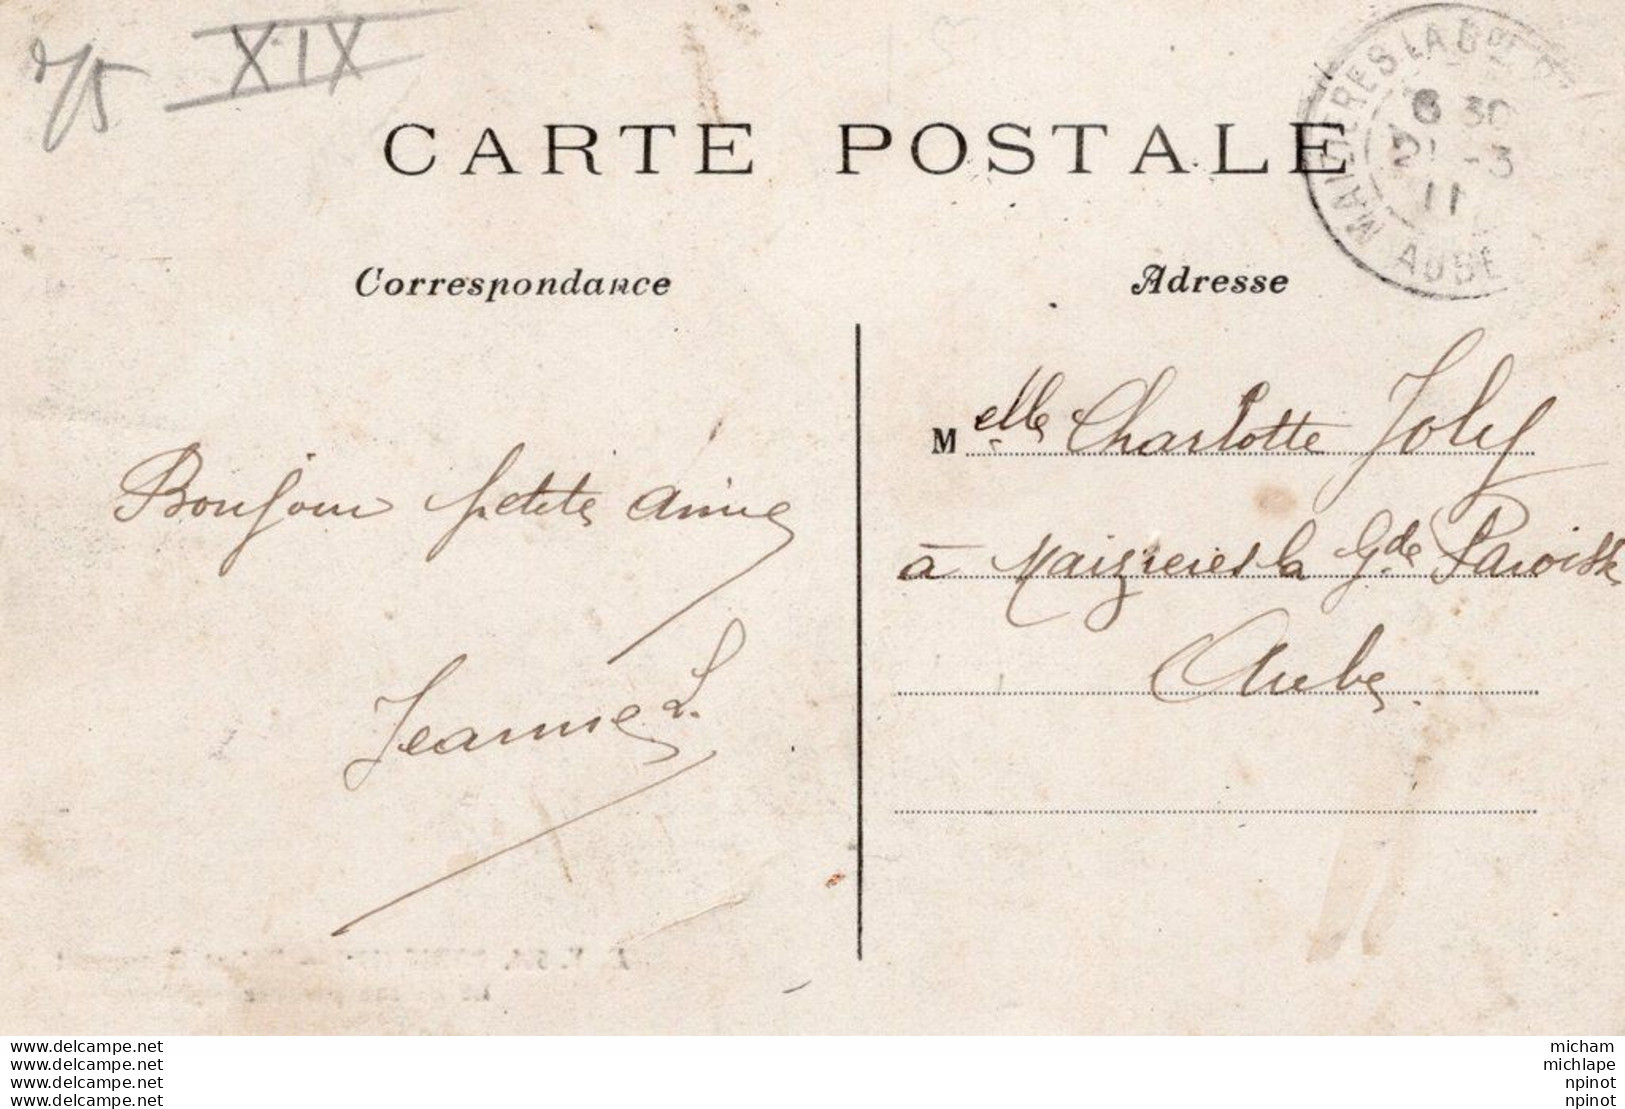 XIX
CARTE POSTALE
MAIZIERES LA Gde P
8 30
21 -3
11
AUBE
Correspondance
Adresse
Melle Charlotte Joly
à Maizieres la Gde Paroisse
Aube.
Bonjour petite amie
Jeanne L.
www.delcampe.net
www.delcampe.net
www.delcampe.net
www.delcampe.net
micham
michlape
npinot
npinot